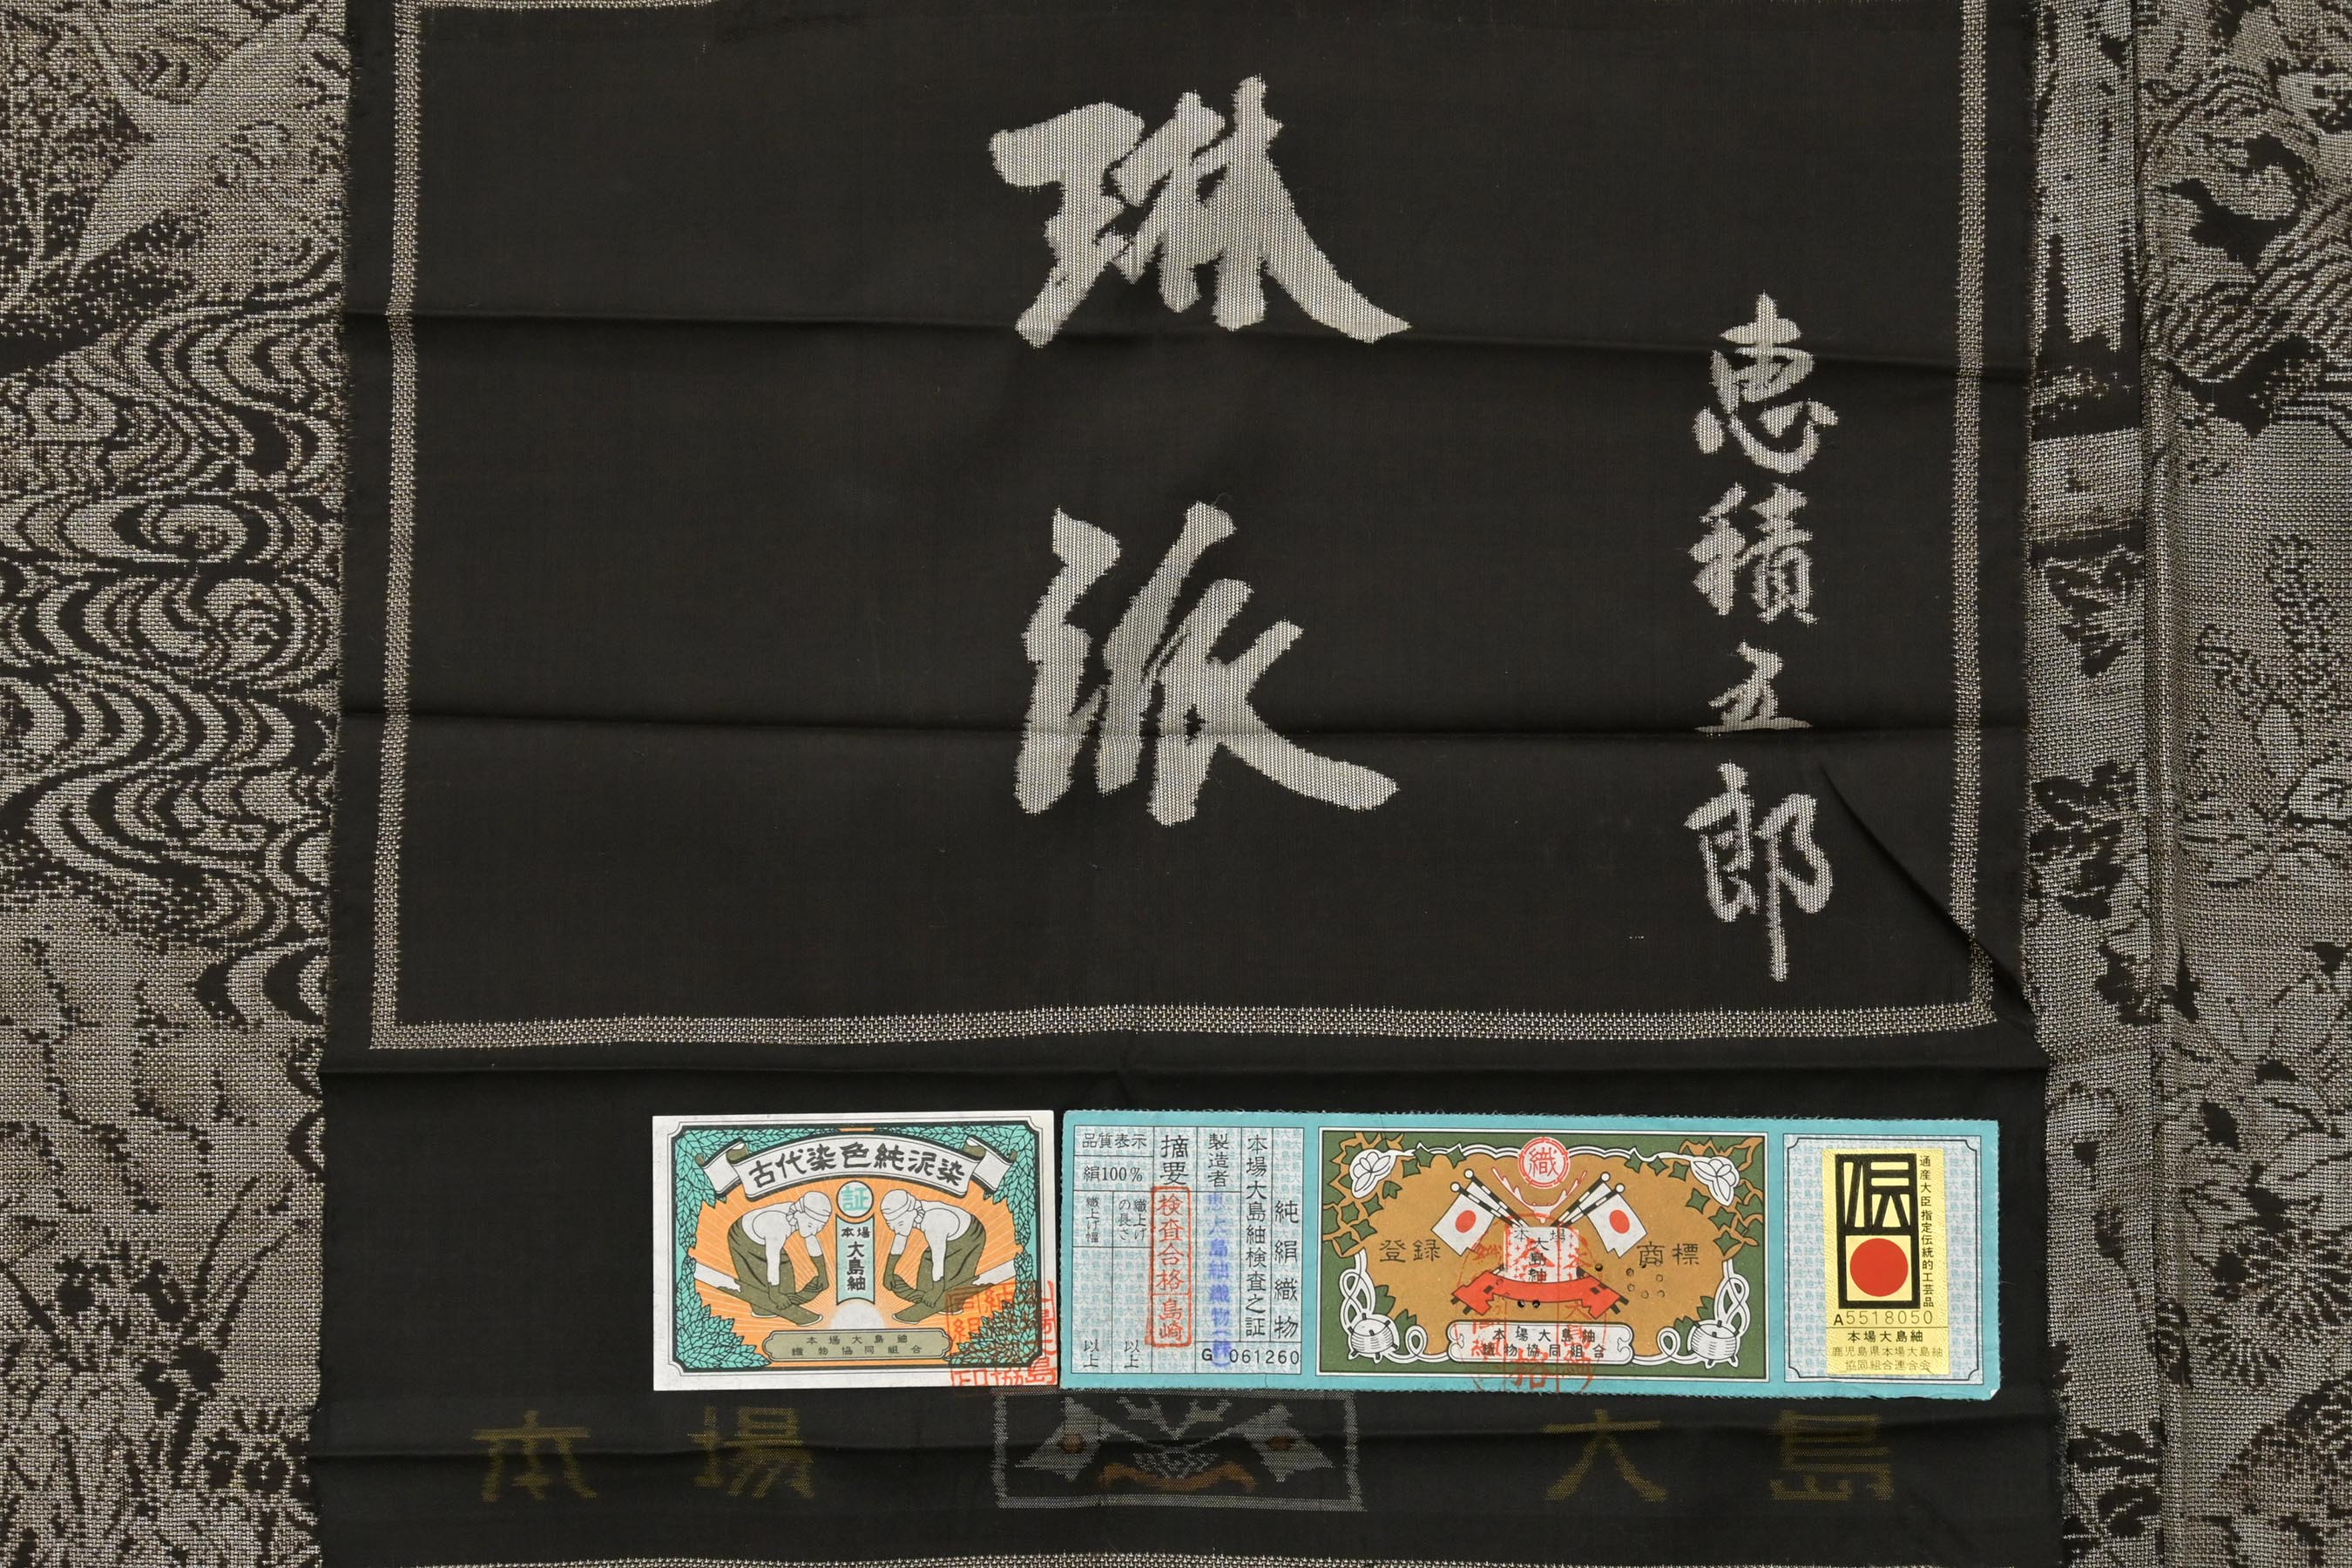 琳派
恵積五郎
古代染色純泥染
証
本場
大島紬
本場大島紬
織物協同組合
品質表示
絹100%
織上げの長さ
織上げ幅
以上
以上
摘要
検査合格
島崎
製造者
本場大島紬検査之証
純絹織物
G 061260
織
登録
商標
本場
大島紬
本場大島紬
織物協同組合
伝
通産大臣指定伝統的工芸品
A5518050
本場大島紬
鹿児島県本場大島紬
協同組合連合会
本場大島